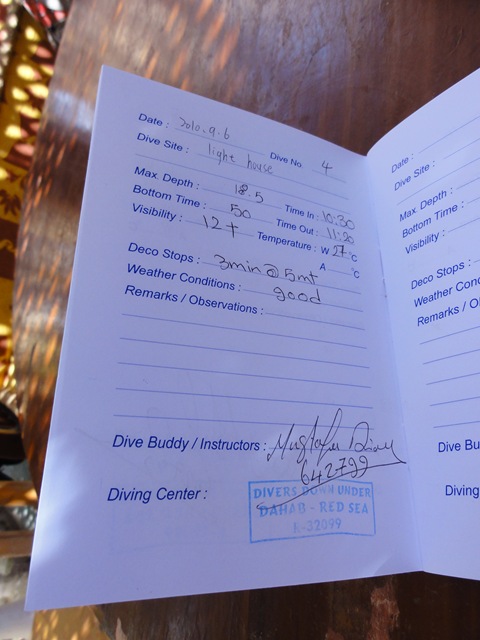 Date : 2010.9.6 Dive No. 4
Dive Site : light house
Max. Depth : 18.5 Time In : 10:30
Bottom Time : 50 Time Out : 11:20
Visibility : 12+ Temperature : W 27 °C
A °C
Deco Stops : 3min @ 5mt
Weather Conditions : good
Remarks / Observations :
Dive Buddy / Instructors : Mustafa
642799
Diving Center : DIVERS DOWN UNDER
DAHAB - RED SEA
-32099
Date :
Dive Site :
Max. Depth :
Bottom Time :
Visibility :
Deco Stops :
Weather Con
Remarks / O
Dive Bu
Diving